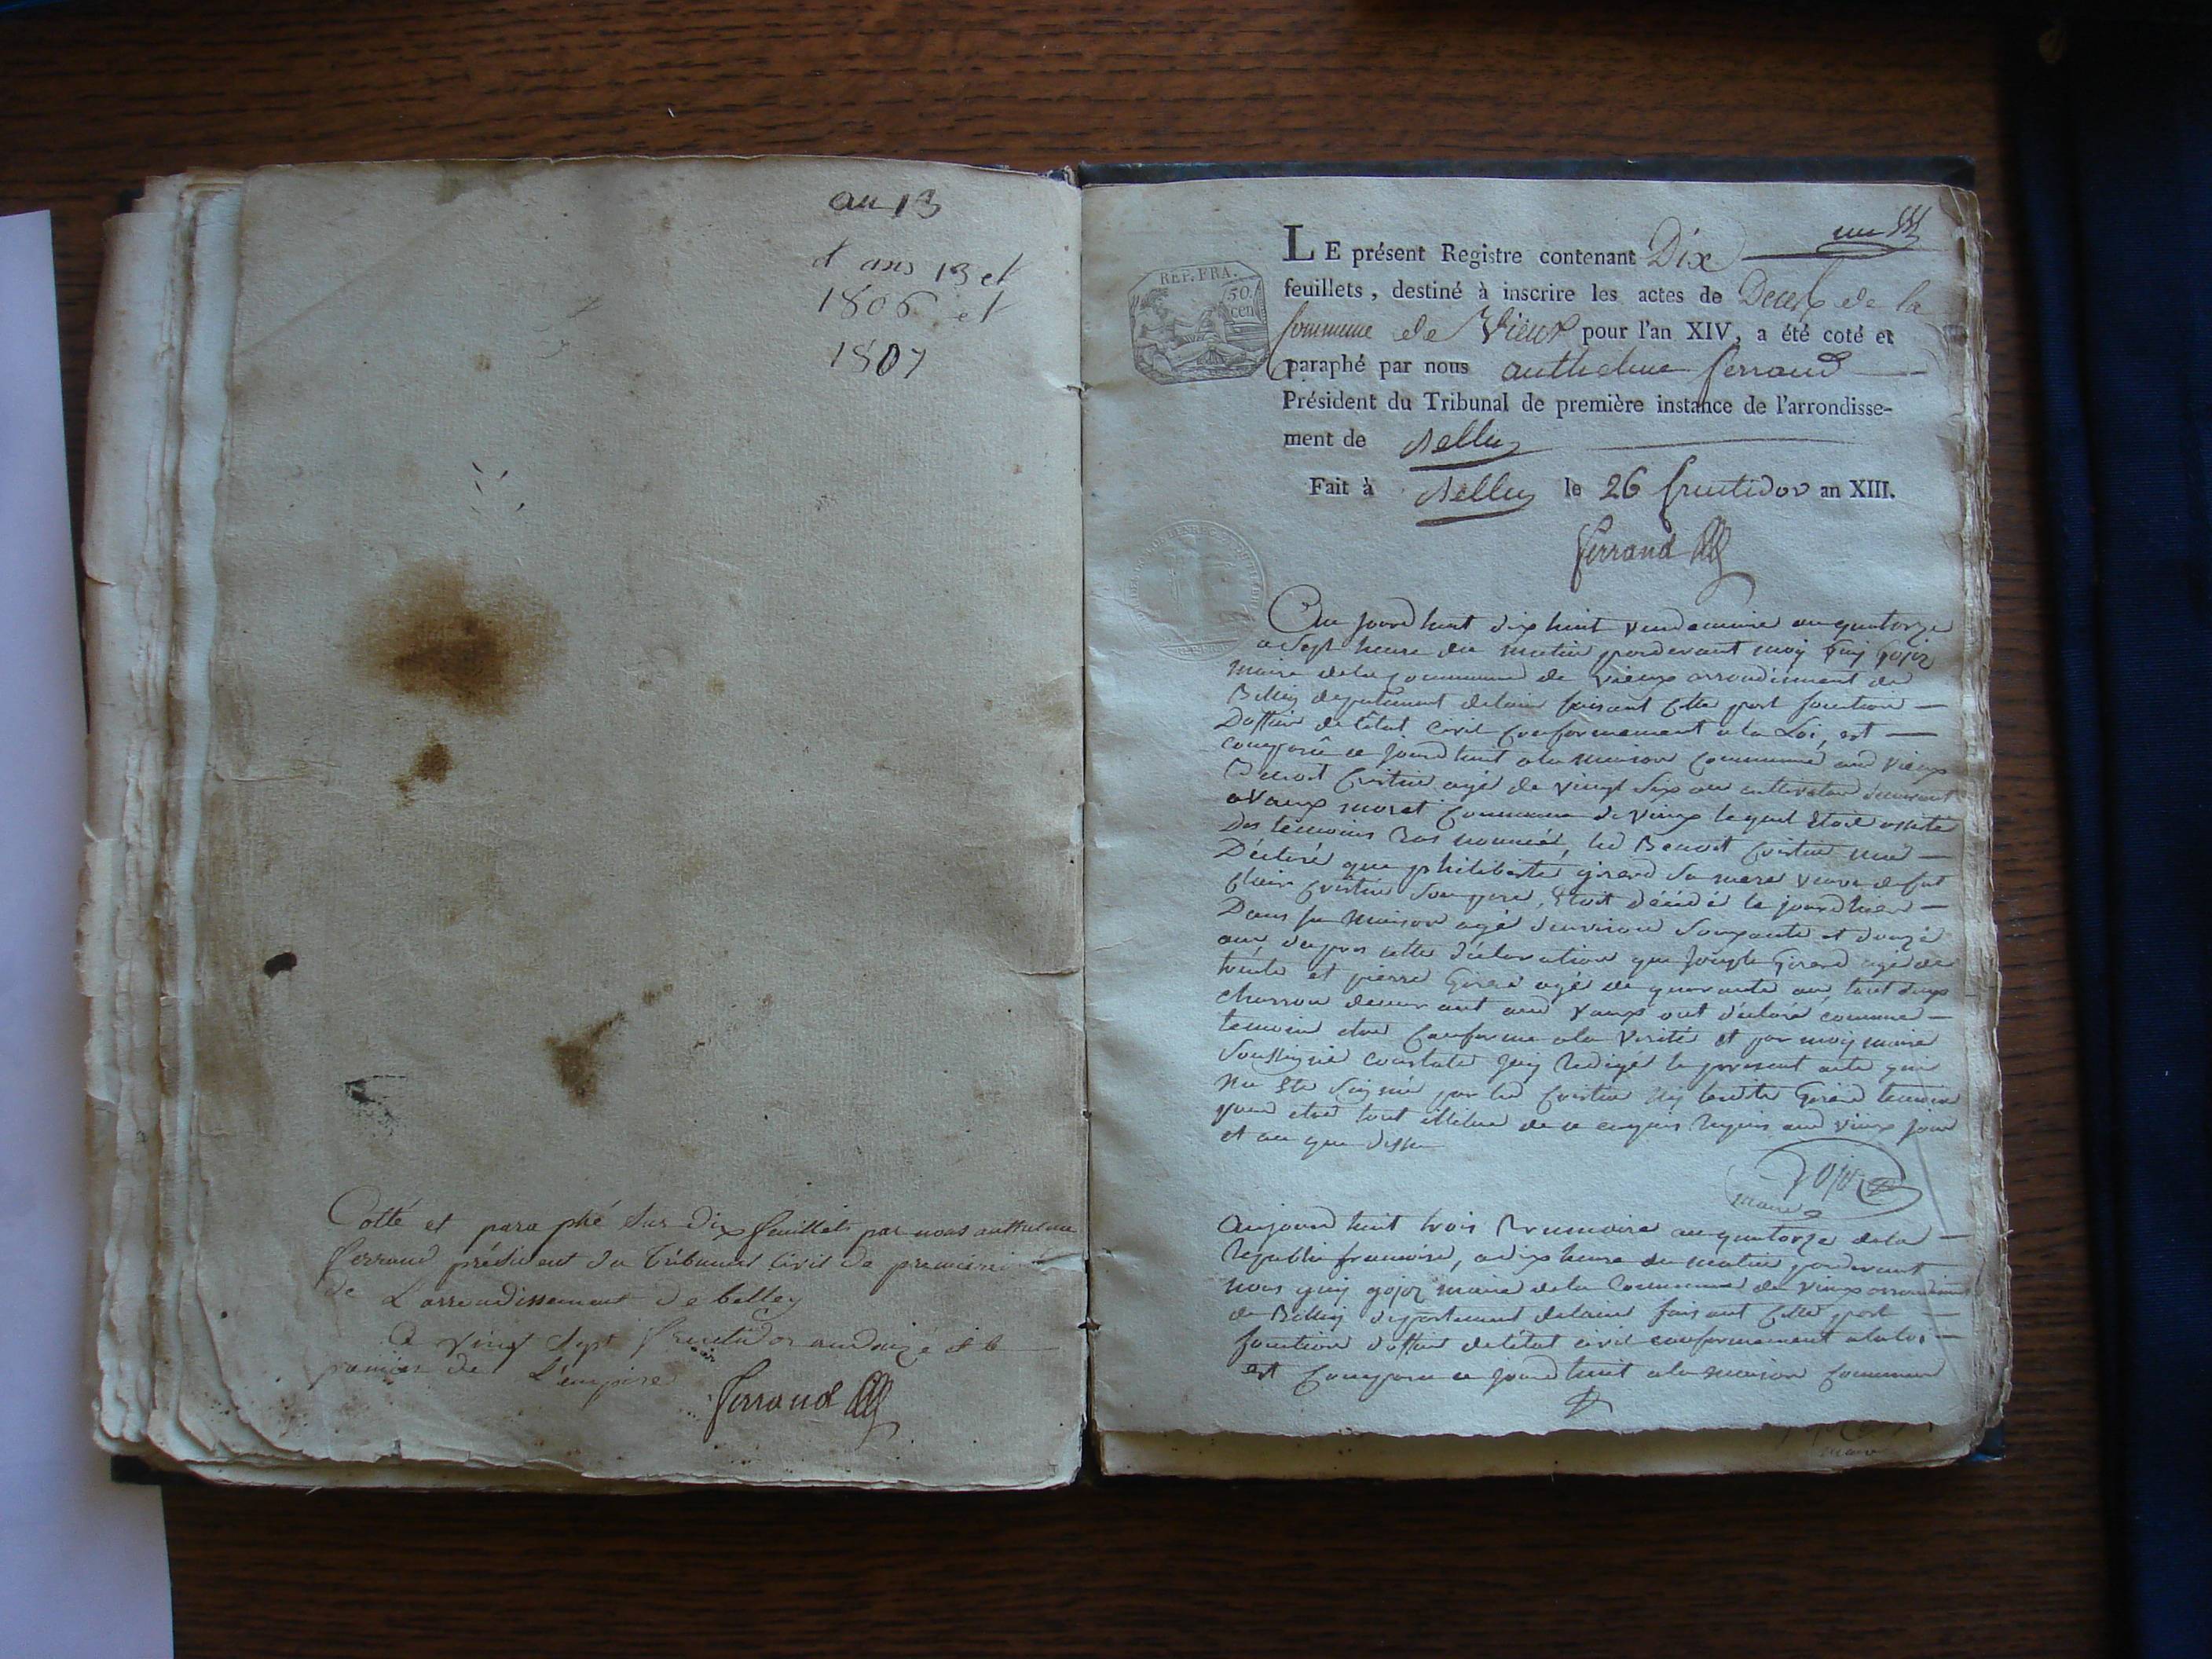 an 13
d ans 13 et
1806 et
1807
Cotté et paraphé sur dix feuillets par nous anthelme
ferrand président du Tribunal Civil de premiere
de L'arrondissement de belley
Ce vingt sept fructidor an douze et le
premier de L'empire
ferrand
un
LE présent Registre contenant Dix
feuillets, destiné à inscrire les actes de Deces de la
Commune de Vieux pour l'an XIV, a été coté et
paraphé par nous anthelme ferrand
Président du Tribunal de première instance de l'arrondisse-
ment de Belley
Fait à Belley le 26 fructidor an XIII.
REP. FRA.
50.
cen
ferrand
Au jourd huit dix huit vendemiaire an quatorze
a Sept heure du matin pardevant moy Guy Gojoz
maire dela Commune de Vieux arrondiment de
Belley departement delain faisant cette part fonction
Doffier de létat Civil Conformement a la Loi, est
comparu ce jourd huit a la maison Commune aud Vieux
Benoit agé de vingt Six an cultivateur demeurant
a Vaux moret Commune de Vieux lequel Etoit assisté
Des temoins bas nommé, led Benoit
Déclaré que philiberte girard Sa mere veuve defut
Claire Son pere, Etoit décédé le jourdhier
Dans Sa maison agé denviron Soixante et douze
an, dapres cette déclaration que Joseph Girard agé de
trente et pierre Girard agé de quarante an, tout deux
charron demeurant aud Vaux ont déclaré comme
temoin etre Conforme a la Verité et par moy maire
Soussigné constaté jay redigé le present acte que
na Eté Signé par led ny lesdits Girard temoin
pour etre tout illitere de ce enquis requis aud Vieux jour
et an que dessu
Gojoz
maire
Aujourd huit trois Brumaire an quatorze dela
Republi francoise, a dix heure du matin pardevant
nous guy gojoz maire dela Commune de Vieux arrondiment
de Belley departement delain faisant Cette part
fonction doffier deletat civil conformement a la loi
est Comparu ce jourd huit a la maison Commune